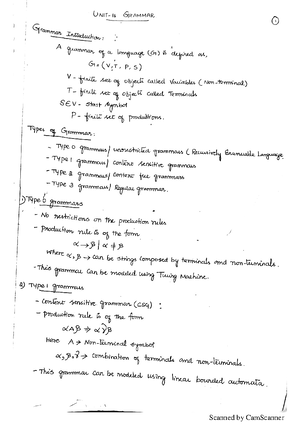 UNIT-II GRAMMAR
Grammar Introduction:
A grammar of a language (G) is defined as,
G = (V, T, P, S)
V - finite set of objects called Variables (Non-Terminal)
T - finite set of objects called Terminals
S∈V - Start Symbol
P - finite set of productions.
Types of Grammar:
- Type 0 grammar/ unrestricted grammars (Recursively Enumerable Language)
- Type 1 grammar/ context sensitive grammars
- Type 2 grammar/ Context free grammars
- Type 3 grammar/ Regular grammar.
1) Type 0 grammars
- No restrictions on the production rules
- production rule is of the form
α → β | α ≠ β
where α, β → can be strings composed by terminals and non-terminals.
- This grammar can be modeled using Turing Machine.
2) Type 1 grammars
- Context sensitive grammar (CSG)
- production rule is of the form
αAβ → αγβ
Here A → Non-terminal symbol
α, β, γ → combination of terminals and non-terminals.
- This grammar can be modeled using linear bounded automata.
Scanned by CamScanner